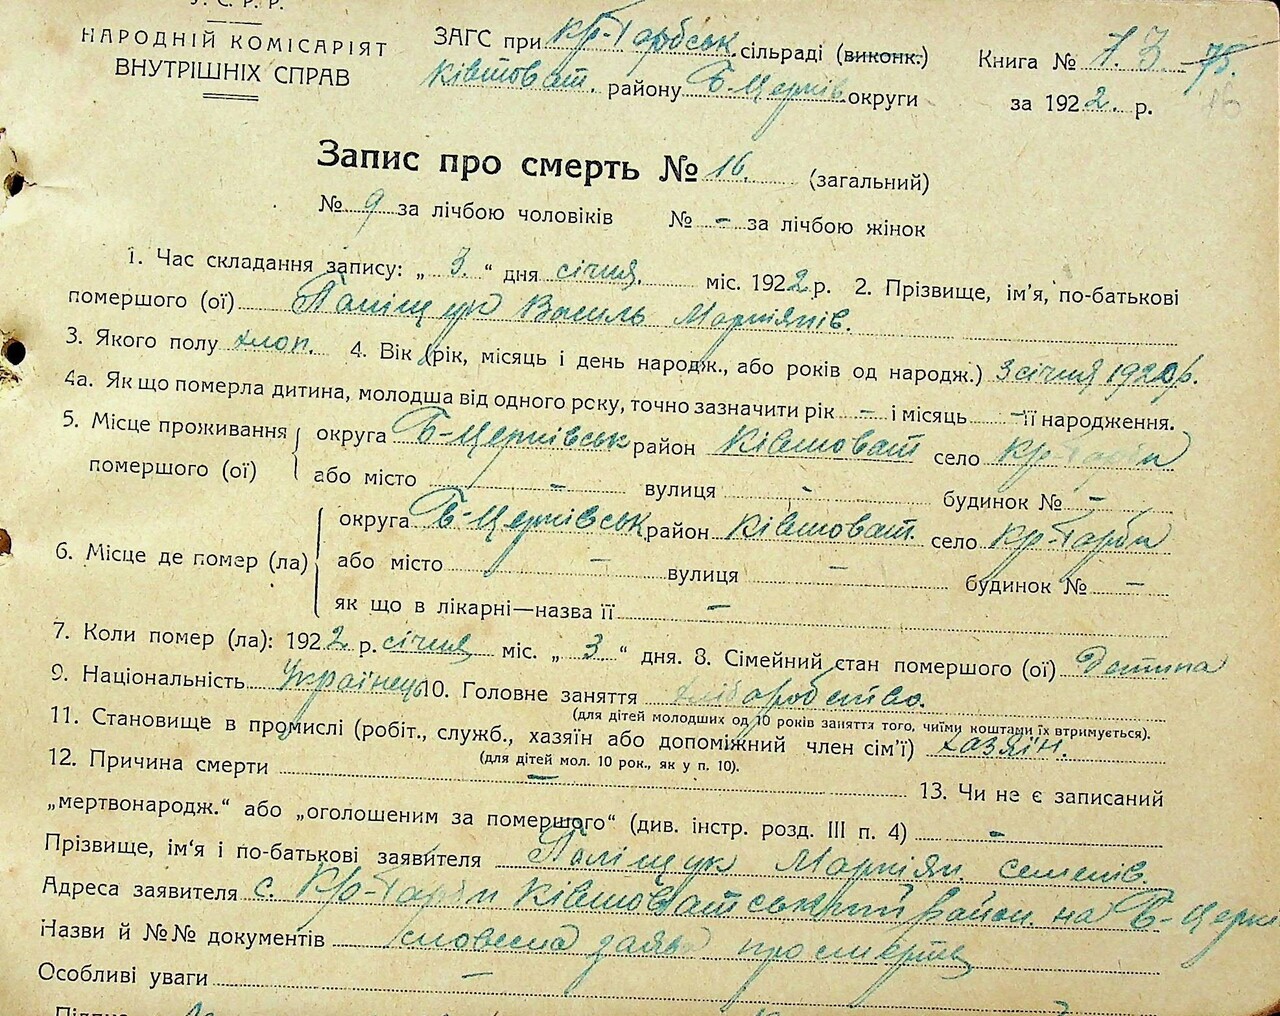 У.С.Р.Р.
НАРОДНІЙ КОМІСАРІЯТ
ВНУТРІШНІХ СПРАВ
ЗАГС при Кр-Гарбськ. сільраді (виконк.)
Ківшоват. району Б-Церків. округи
Книга № 13. 75.
за 1922. р.
16
Запис про смерть № 16. (загальний)
№ 9 за лічбою чоловіків № – за лічбою жінок
1. Час складання запису: „ 3. “ дня січня. міс. 1922 р. 2. Прізвище, ім'я, по-батькові
помершого (ої) Паліщук Василь Маркіянів.
3. Якого полу хлоп. 4. Вік (рік, місяць і день народж., або років од народж.) 3 січня 1922 р.
4а. Як що померла дитина, молодша від одного року, точно зазначити рік – і місяць – її народження.
5. Місце проживання помершого (ої) округа Б-Церківськ район Ківшоват село Кр-Гарби
або місто – вулиця - будинок № –
6. Місце де помер (ла) округа Б-Церківськ район Ківшоват. село Кр-Гарби
або місто – вулиця – будинок № –
як що в лікарні—назва її –
7. Коли помер (ла): 1922 р. січня міс. „ 3 “ дня. 8. Сімейний стан помершого (ої) Детина
9. Національність Українець 10. Головне заняття хліборобство.
(для дітей молодших од 10 років заняття того, чиїми коштами їх втримується).
11. Становище в промислі (робіт., служб., хазяїн або допоміжний член сім'ї) хазяін.
(для дітей мол. 10 рок., як у п. 10).
12. Причина смерти – 13. Чи не є записаний
„мертвонародж.“ або „оголошеним за помершого“ (див. інстр. розд. III п. 4) –
Прізвище, ім'я і по-батькові заявителя Паліщук Маркіян. семенів.
Адреса заявителя с. Кр-Гарби Ківшоватський район. на Б-Церкі
Назви й №№ документів словесна заява про смерть
Особливі уваги –